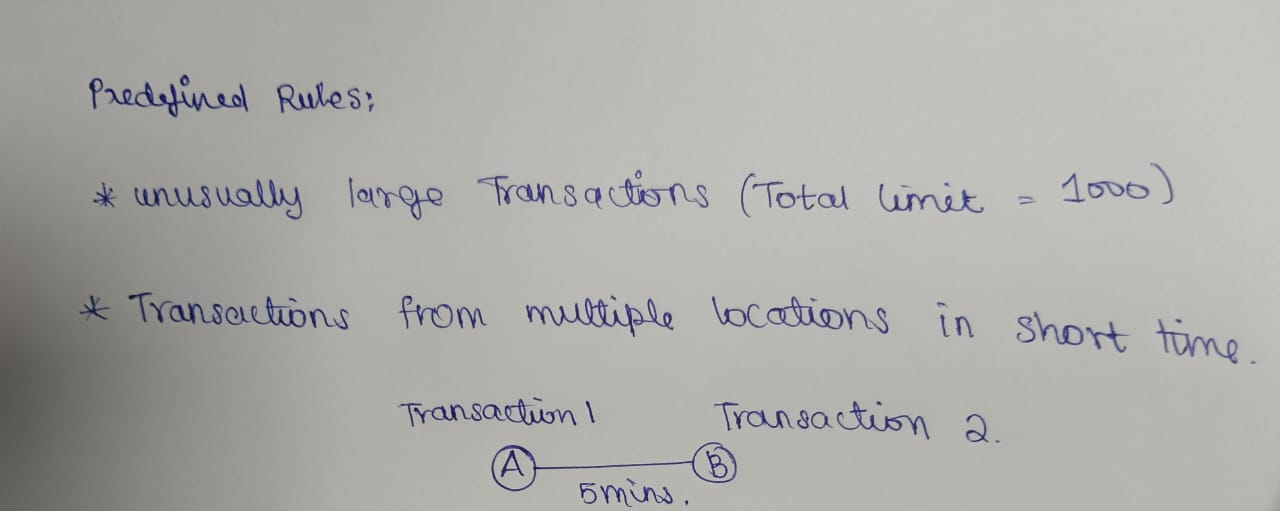 Predefined Rules:
* unusually large Transactions (Total limit = 1000)
* Transactions from multiple locations in short time.
Transaction 1 Transaction 2.
A B
5mins.